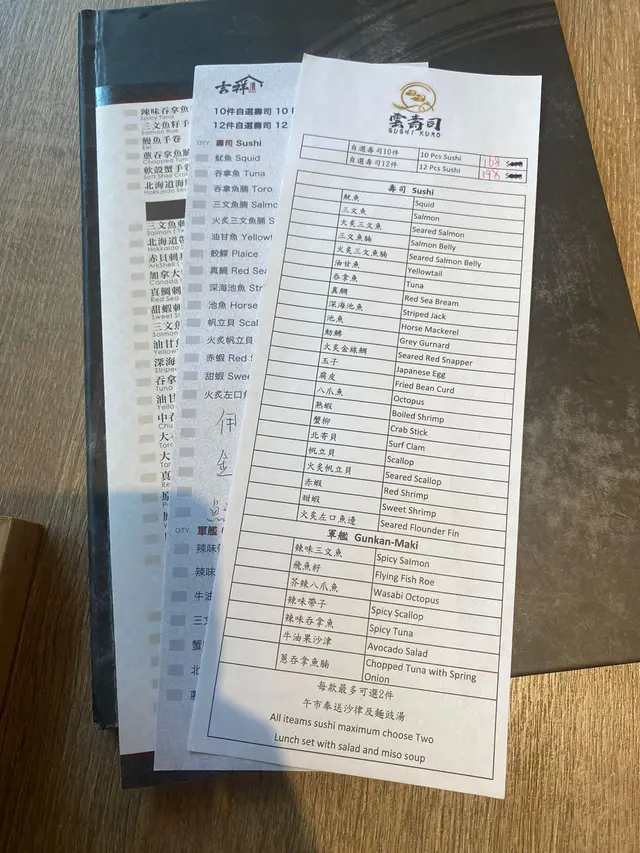 辣味吞拿魚
Spicy Tuna
三文魚籽手
Salmon Roe
鰻魚手卷
Eel
蔥吞拿魚腩
Chopped Tuna
軟殼蟹手卷
Soft Shell Cra
北海道海
Hokkaido Sea
三文魚刺
Salmon
北海道帶
Hokkaido
赤貝刺身
ArkShell
加拿大
Canada
真鯛刺
Red Sea
甜蝦刺
Sweet
三文魚
Salmon
油甘魚
Yellow
深海
Striped
吞拿
Tuna
油甘
Yellow
中吞
Chu
大
Toro
大
Toro
真
Red
玄祥
10件自選壽司 10
12件自選壽司 12
QTY. 壽司 Sushi
魷魚 Squid
吞拿魚 Tuna
吞拿魚腩 Toro
三文魚腩 Salmo
火炙三文魚腩 S
油甘魚 Yellowt
鮫鰈 Plaice
真鯛 Red Sea
深海池魚 Stri
池魚 Horse
帆立貝 Scal
火炙帆立貝
赤蝦 Red S
甜蝦 Swee
火炙左口魚
伊
金
QTY. 軍艦
辣味帶
辣味
牛油
三文
蟹
北
雲壽司
SUSHI KUMO
自選壽司10件 10 Pcs Sushi 168
自選壽司12件 12 Pcs Sushi 198
壽司 Sushi
魷魚 Squid
三文魚 Salmon
火炙三文魚 Seared Salmon
三文魚腩 Salmon Belly
火炙三文魚腩 Seared Salmon Belly
油甘魚 Yellowtail
吞拿魚 Tuna
真鯛 Red Sea Bream
深海池魚 Striped Jack
池魚 Horse Mackerel
魴鮄 Grey Gurnard
火炙金線鯛 Seared Red Snapper
玉子 Japanese Egg
腐皮 Fried Bean Curd
八爪魚 Octopus
熟蝦 Boiled Shrimp
蟹柳 Crab Stick
北寄貝 Surf Clam
帆立貝 Scallop
火炙帆立貝 Seared Scallop
赤蝦 Red Shrimp
甜蝦 Sweet Shrimp
火炙左口魚邊 Seared Flounder Fin
軍艦 Gunkan-Maki
辣味三文魚 Spicy Salmon
飛魚籽 Flying Fish Roe
芥辣八爪魚 Wasabi Octopus
辣味帶子 Spicy Scallop
辣味吞拿魚 Spicy Tuna
牛油果沙津 Avocado Salad
蔥吞拿魚腩 Chopped Tuna with Spring
Onion
每款最多可選2件
午市奉送沙律及麵豉湯
All iteams sushi maximum choose Two
Lunch set with salad and miso soup